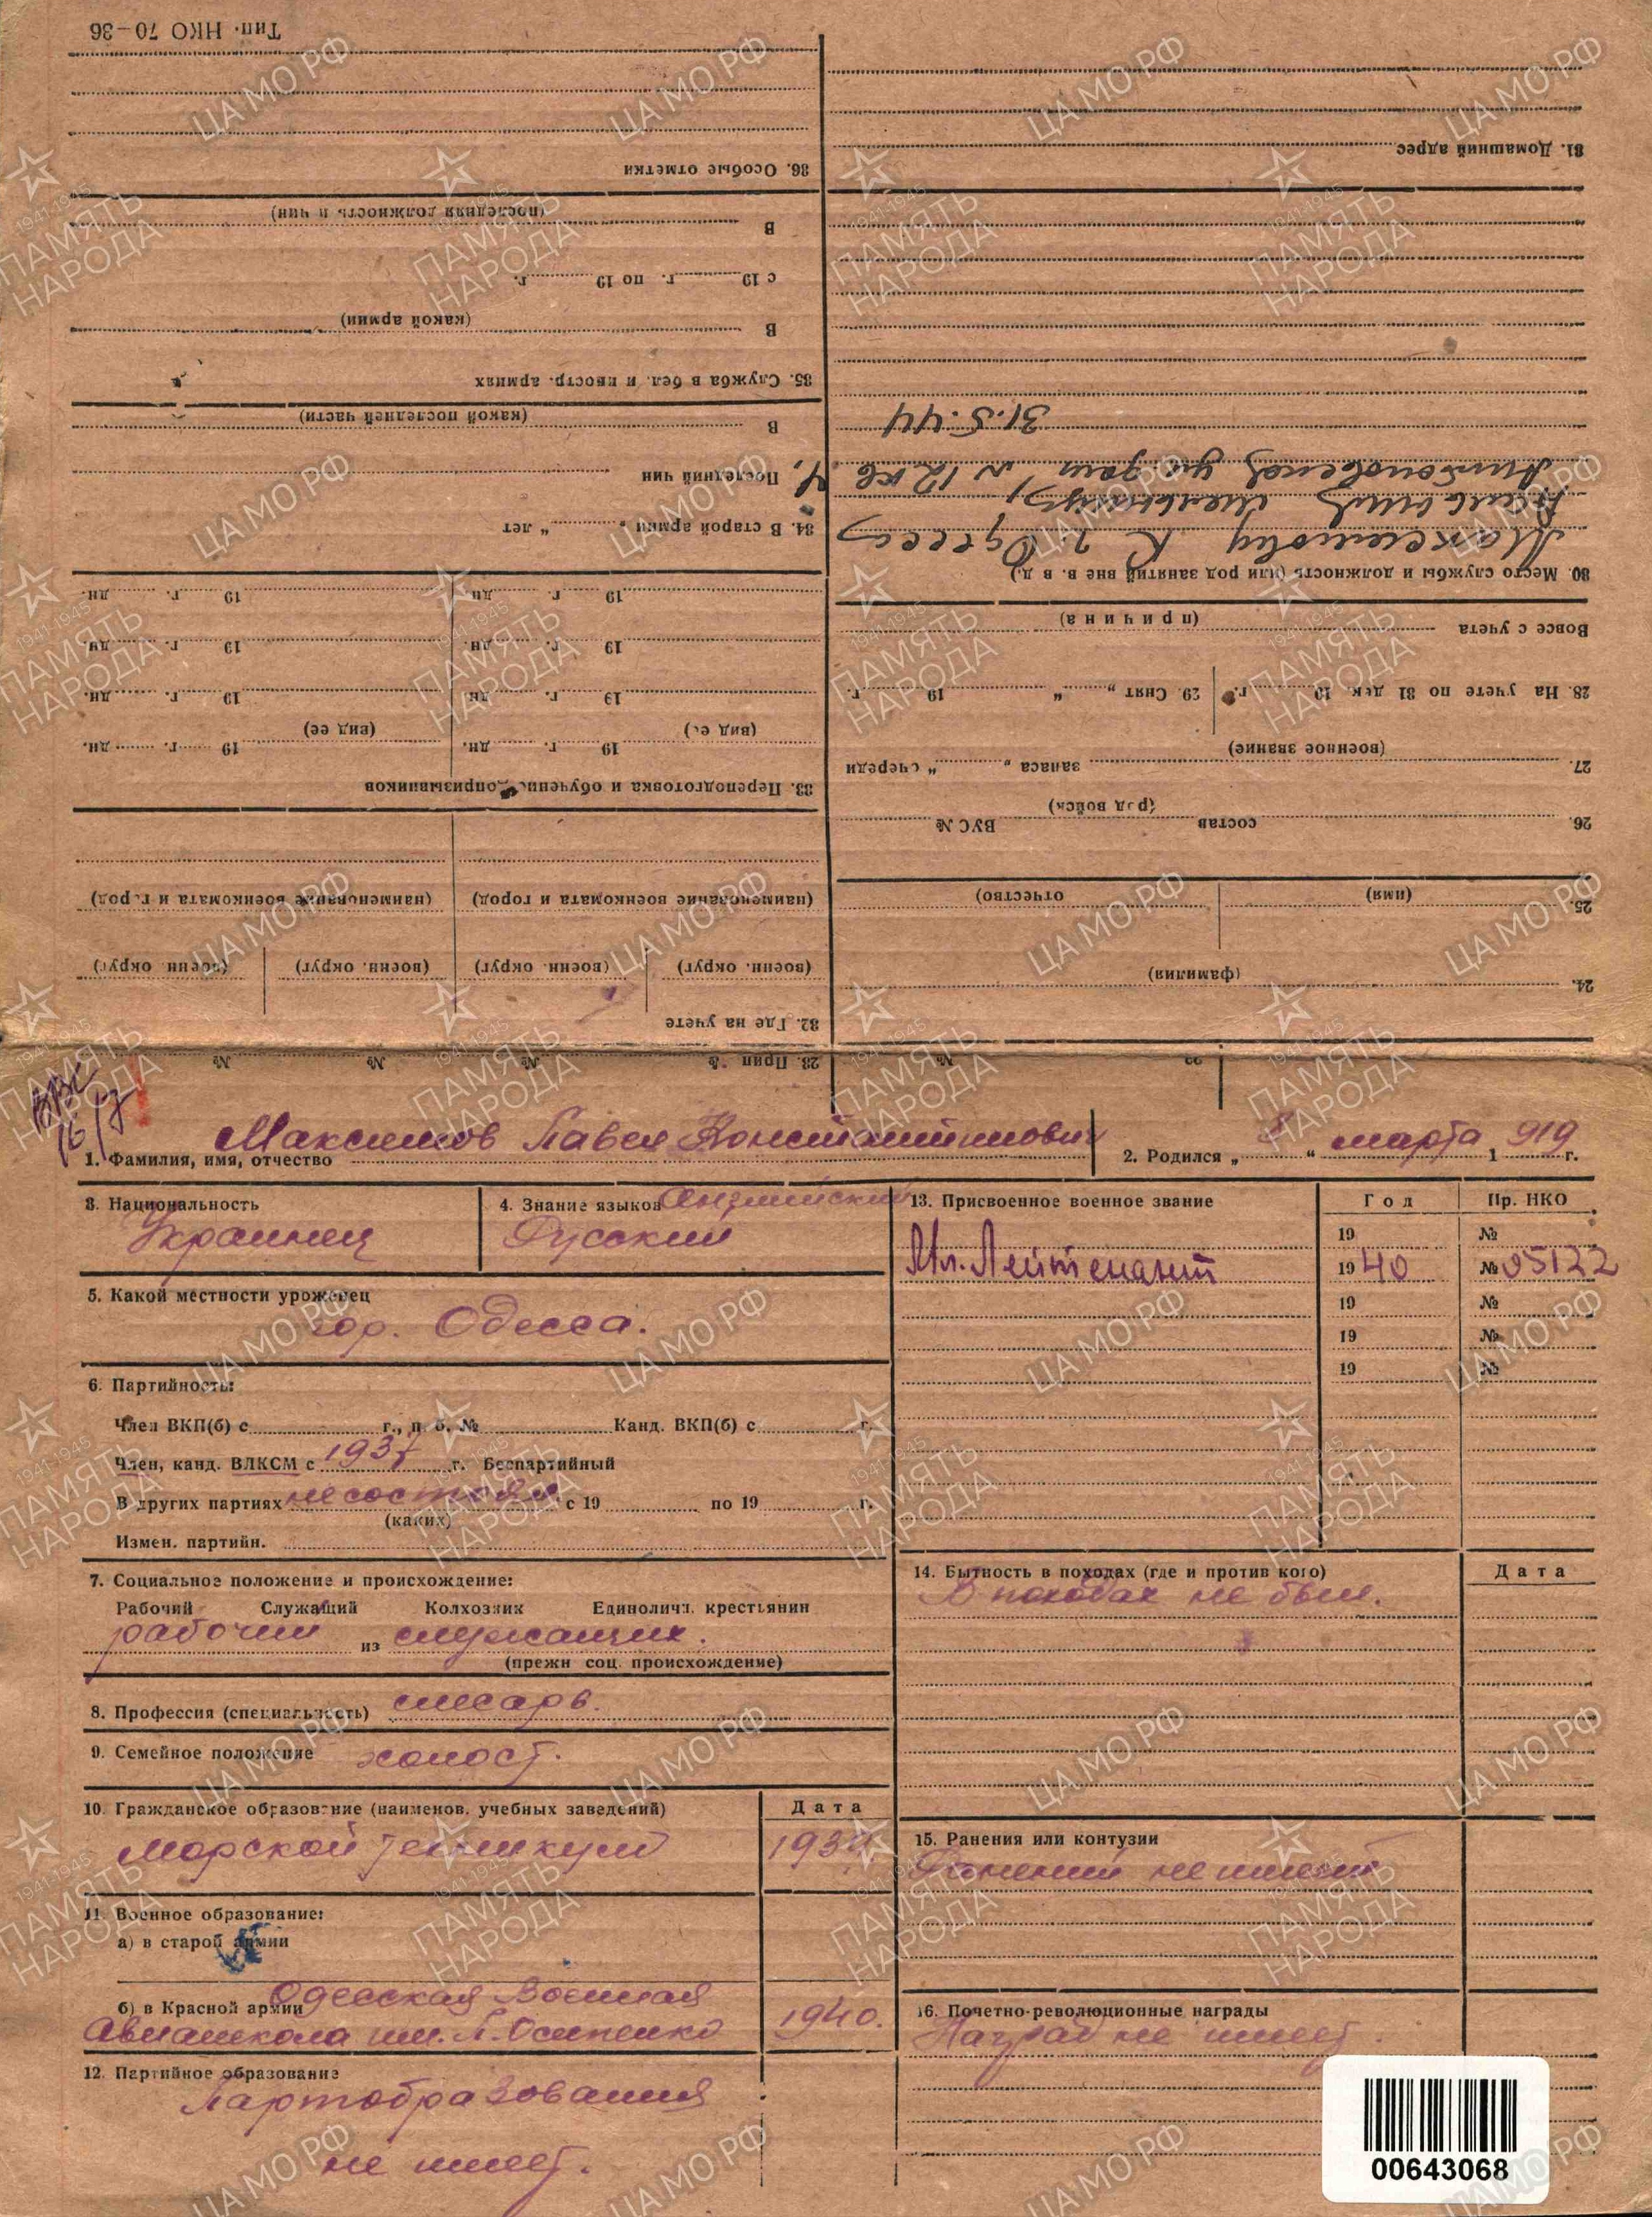 ВВС
16/7
Максимов Павел Константинович
1. Фамилия, имя, отчество
2. Родился „ 8 “ марта 1919 г.
3. Национальность
Украинец
4. Знание языков Английский
Русский
5. Какой местности уроженец
гор. Одесса.
6. Партийность:
Член ВКП(б) с г., п. б. № Канд. ВКП(б) с г.
Член, канд. ВЛКСМ с 1937 г. Беспартийный
В других партиях не состоял с 19 по 19 г.
(каких)
Измен. партийн.
7. Социальное положение и происхождение:
Рабочий Служащий Колхозник Единоличн. крестьянин
рабочий из служащих.
(прежн соц. происхождение)
8. Профессия (специальность) слесарь.
9. Семейное положение холост.
10. Гражданское образование (наименов. учебных заведений) Дата
Морской техникум
11. Военное образование:
а) в старой армии
б) в Красной армии Одесская Военная
Авиашкола им. П. Осипенко 1940.
12. Партийное образование
Партобразования
не имеет.
13. Присвоенное военное звание Год Пр. НКО
19 №
Мл. Лейтенант 1940 № 05122
19 №
19 №
19 №
14. Бытность в походах (где и против кого) Дата
В походах не был.
15. Ранения или контузии
Ранений не имеет
16. Почетно-революционные награды
Наград не имеет.
00643068
23. Прип № № № №
24.
(фамилия)
25.
(имя) (отчество)
26. состав ВУС №
(род войск)
27. запаса „ “ очереди
(военное звание)
28. На учете по 31 дек. 19 г. 29. Снят „ “ 19 г.
Вовсе с учета
(причина)
30. Место службы и должность (или род занятий вне в. в д.)
Максимову К г. Одесса
31.5.44
31. Домашний адрес
32. Где на учете
(военн. округ) (военн. округ) (военн. округ) (военн. округ)
(наименование военкомата и город) (наименование военкомата и город)
33. Переподготовка и обучение допризывников
19 г. дн. 19 г. дн.
(вид ее) (вид ее)
19 г. дн 19 г. дн.
19 г. дн 19 г. дн
19 г. дн 19 г. дн.
34. В старой армии „ “ лет
Последний чин
В
(какой последней части)
35. Служба в бел. и иностр. армиях
В
(какой армии)
с 19 г. по 19 г.
В
(последняя должность и чин)
36. Особые отметки
Тип. НКО 70—36
ЦАМО РФ
1941-1945
ПАМЯТЬ
НАРОДА